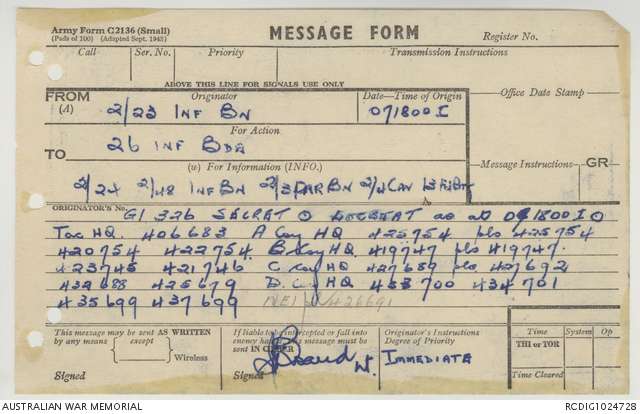 Army Form C2136 (Small)
(Pads of 100) (Adapted Sept. 1943)
MESSAGE FORM
Register No.
Call Ser. No. Priority Transmission Instructions
ABOVE THIS LINE FOR SIGNALS USE ONLY
FROM Originator Date—Time of Origin Office Date Stamp
(A) 2/23 INF BN 071800 I
For Action
TO 26 INF BDE
(w) For Information (INFO.) Message Instructions GR
2/24 2/48 INF BN 2/3 BN 2/4
Originator's No.
G1 326 SECRET as at 071800 I O
Tac HQ. 406683 A Coy HQ 425754 pls 425754
420754 422754. B Coy HQ 419747 pls 419747.
423745 421746 C Coy HQ 427689 pls 427692
432688 425679 D. Coy HQ 433700 434701
435699 437699 426691
This message may be sent AS WRITTEN
by any means except
Wireless
Signed
If liable to be intercepted or fall into
enemy hands, this message must be
sent IN CIPHER
Signed
Originator's Instructions
Degree of Priority
IMMEDIATE
Time System Op
THI or TOR
Time Cleared
AUSTRALIAN WAR MEMORIAL RCDIG1024728